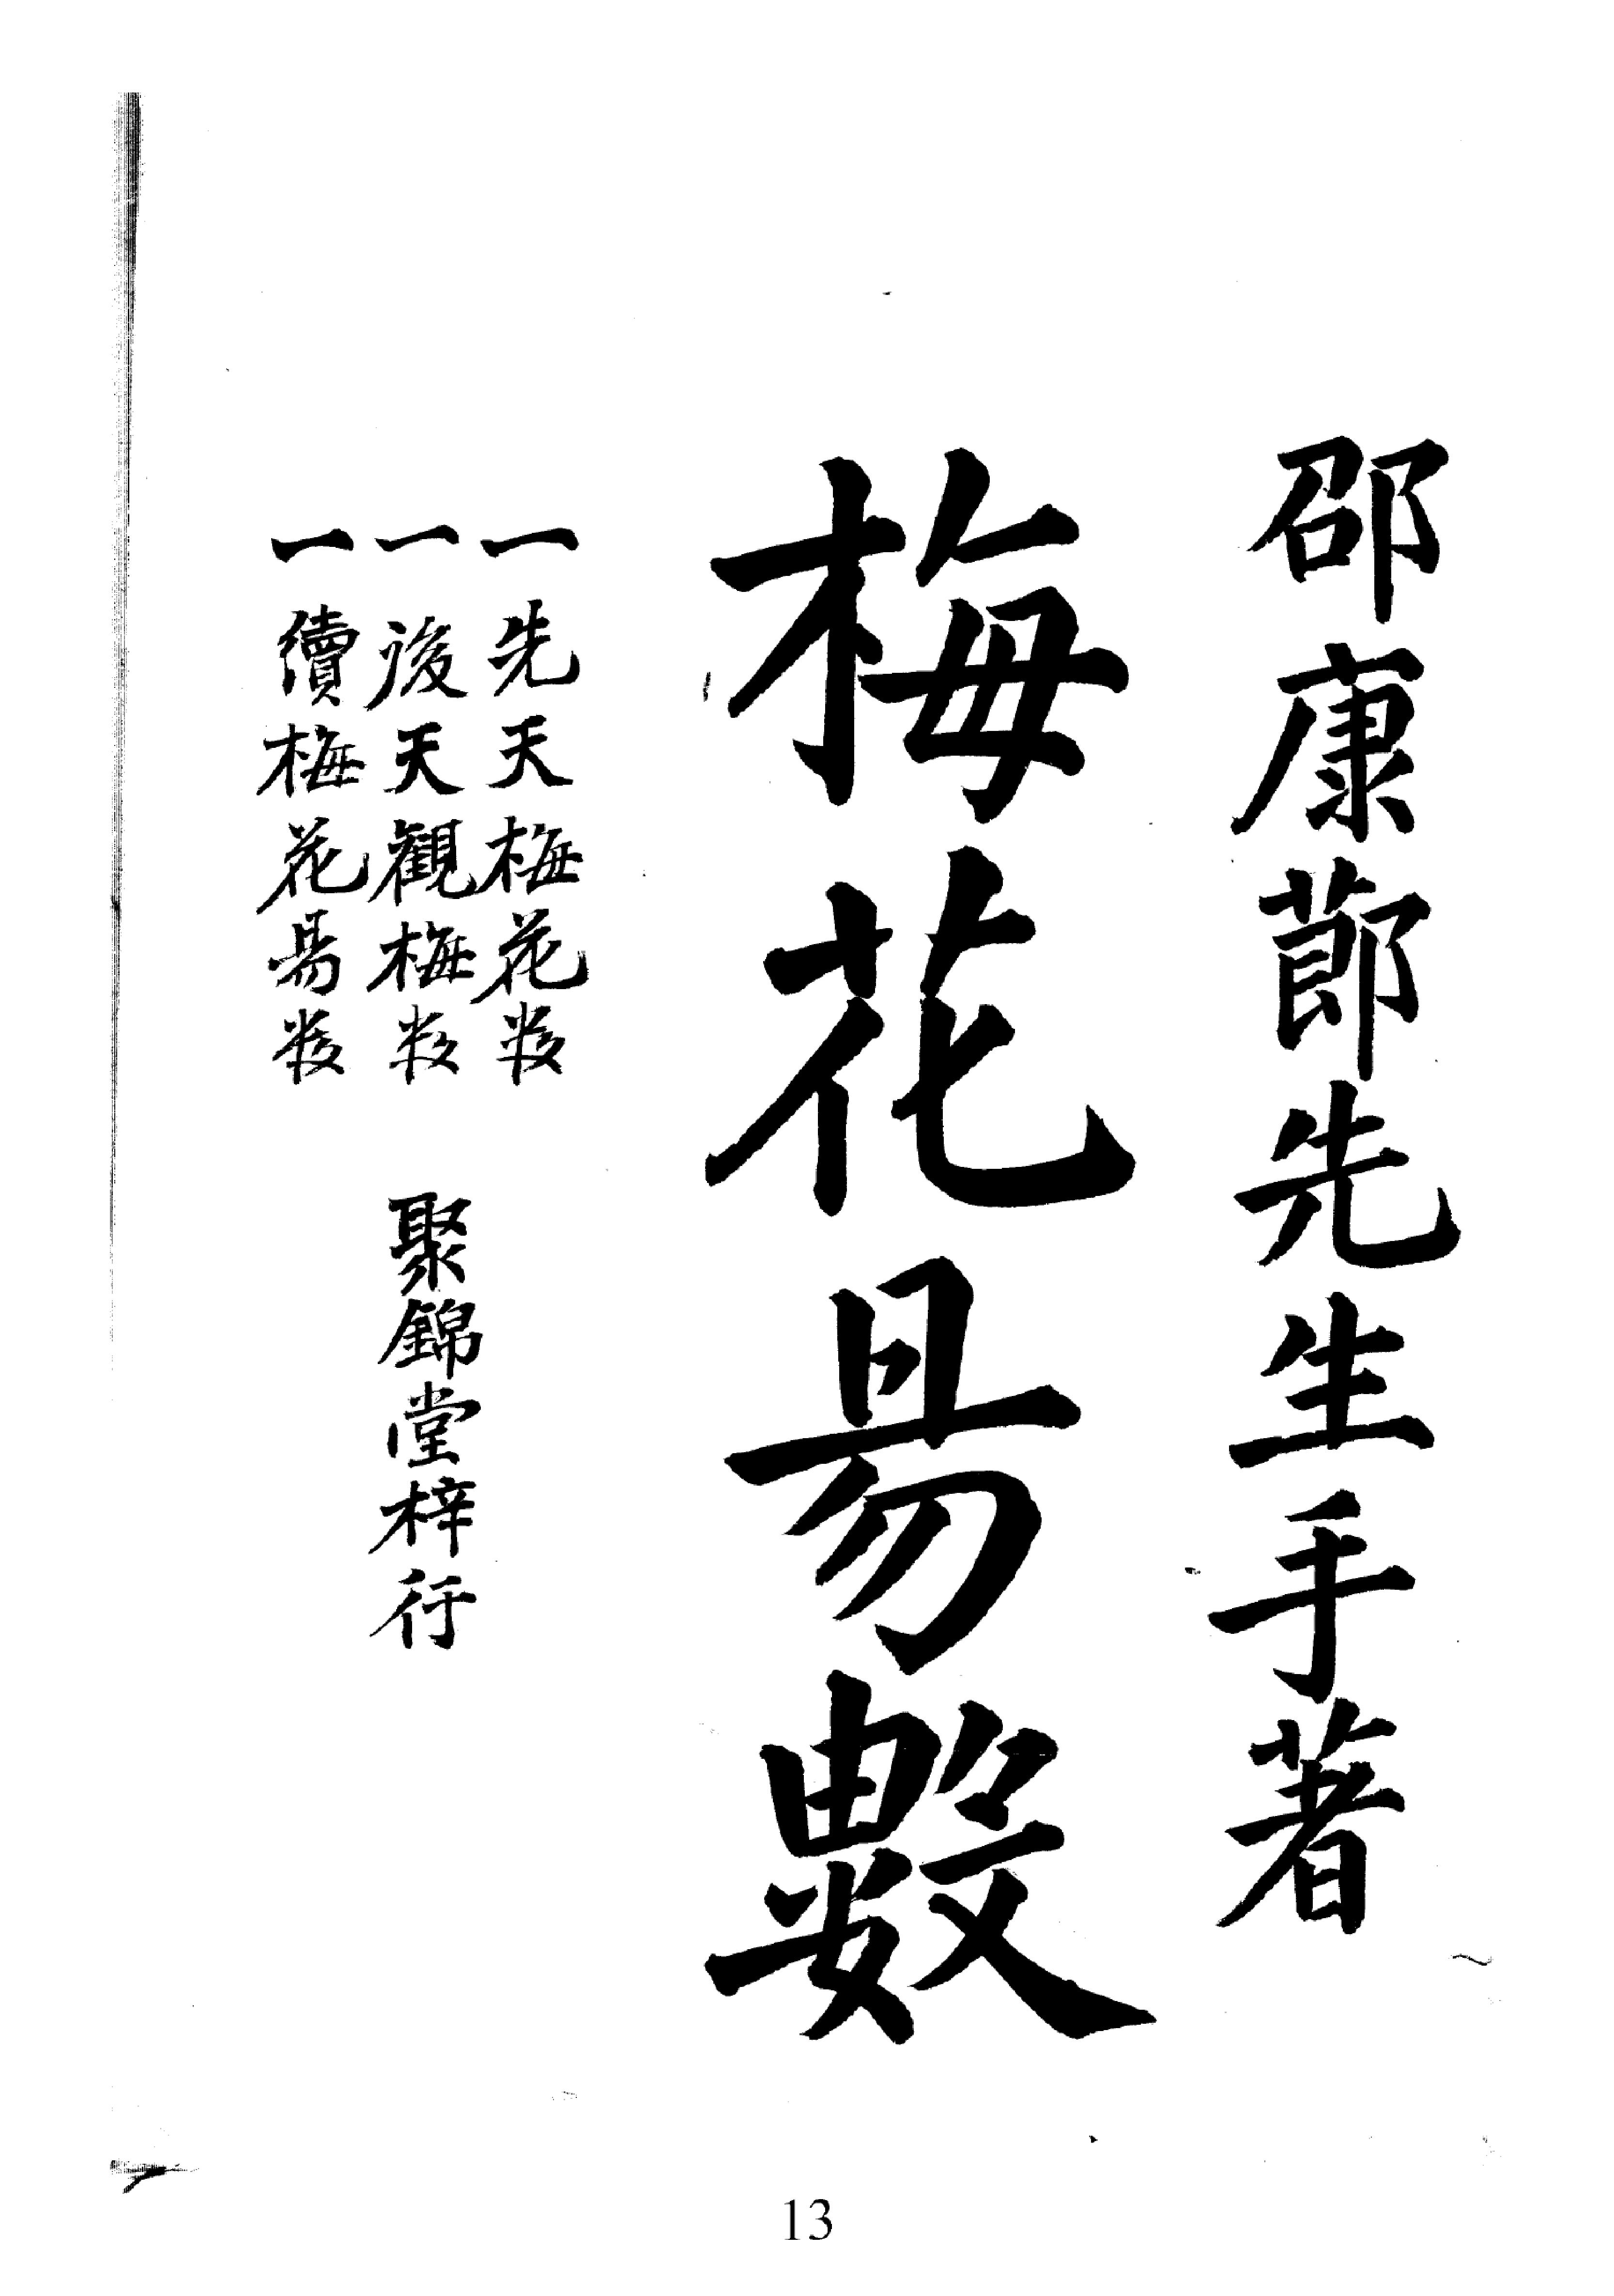 邵康節先生手著
梅花易數
一先天梅花数
一後天觀梅数
一續梅花易数
聚錦堂梓行
13